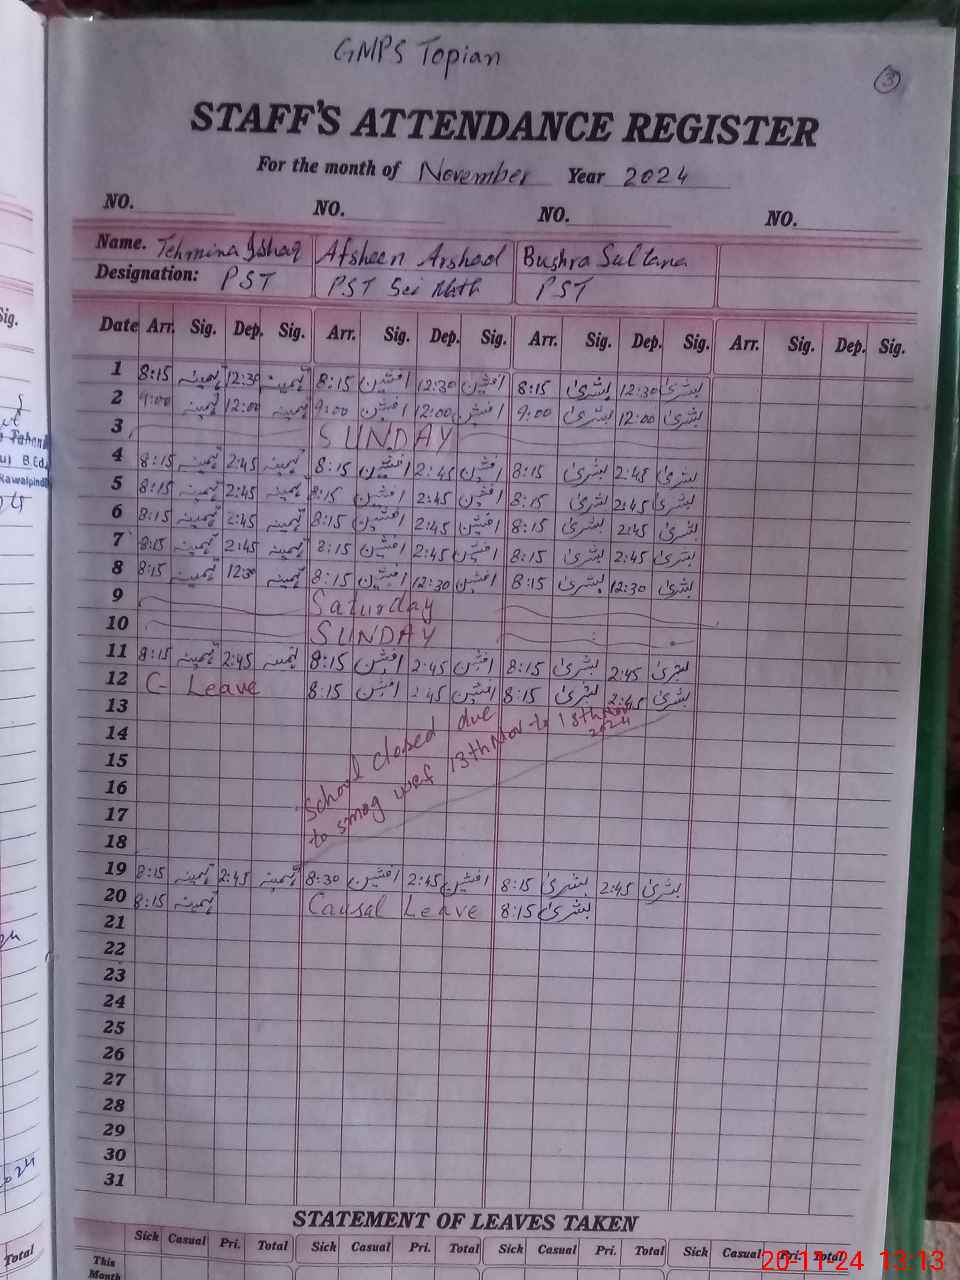 GMPS Topian
3
STAFF'S ATTENDANCE REGISTER
For the month of November Year 2024
NO. NO. NO. NO.
Name. Tehmina Ishaq Afsheen Arshad Bushra Sultana
Designation: PST PST Sci Math PST
Date Arr. Sig. Dep. Sig. Arr. Sig. Dep. Sig. Arr. Sig. Dep. Sig. Arr. Sig. Dep. Sig.
1 8:15 تہمینہ 12:30 تہمینہ 8:15 افشین 12:30 افشین 8:15 بشریٰ 12:30 بشریٰ
2 9:00 تہمینہ 12:00 تہمینہ 9:00 افشین 12:00 افشین 9:00 بشریٰ 12:00 بشریٰ
3 SUNDAY
4 8:15 تہمینہ 2:45 تہمینہ 8:15 افشین 2:45 افشین 8:15 بشریٰ 2:45 بشریٰ
5 8:15 تہمینہ 2:45 تہمینہ 8:15 افشین 2:45 افشین 8:15 بشریٰ 2:45 بشریٰ
6 8:15 تہمینہ 2:45 تہمینہ 8:15 افشین 2:45 افشین 8:15 بشریٰ 2:45 بشریٰ
7 8:15 تہمینہ 2:45 تہمینہ 8:15 افشین 2:45 افشین 8:15 بشریٰ 2:45 بشریٰ
8 8:15 تہمینہ 12:30 تہمینہ 8:15 افشین 12:30 افشین 8:15 بشریٰ 12:30 بشریٰ
9 Saturday
10 SUNDAY
11 8:15 تہمینہ 2:45 تہمینہ 8:15 افشین 2:45 افشین 8:15 بشریٰ 2:45 بشریٰ
12 C- Leave 8:15 افشین 2:45 افشین 8:15 بشریٰ 2:45 بشریٰ
13
14
15
16
17
18
School closed due
to smog wef 13th Nov to 18th Nov
2024
19 8:15 تہمینہ 2:45 تہمینہ 8:30 افشین 2:45 افشین 8:15 بشریٰ 2:45 بشریٰ
20 8:15 تہمینہ Causal Leave 8:15 بشریٰ
21
22
23
24
25
26
27
28
29
30
31
STATEMENT OF LEAVES TAKEN
Sick Casual Pri. Total Sick Casual Pri. Total Sick Casual Pri. Total Sick Casual Pri. Total
This
Month
20-11-24 13:13